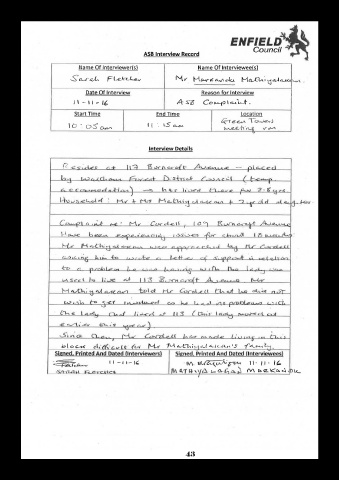 ENFIELD
Council
ASB Interview Record
Name Of Interviewer(s) Name Of Interviewee(s)
Sarah Fletcher Mr Markandu Mathiyalagan
Date Of Interview Reason for Interview
11-11-16 ASB Complaint.
Start Time End Time Location
10:05am 11:15am Green Towers
meeting rm
Interview Details
Resides at 117 Burncroft Avenue – placed
by Waltham Forest District Council (temp
accommodation) → has lived there for
Household: Mr + Mrs Mathiyalagan + yr old daughter
Complaint re: Mr Cordell, 109 Burncroft Avenue
Have been experiencing issues for about 18 months
Mr Mathiyalagan was approached by Mr Cordell
asking him to write a letter of support in relation
to a problem he was having with the lady who
used to live at 113 Burncroft Avenue. Mr
Mathiyalagan told Mr Cordell that he did not
wish to get involved as he had no problems with
the lady that lived at 113 (this lady moved out
earlier this year).
Since then, Mr Cordell has made living in this
block difficult for Mr Mathiyalagan's family.
Signed, Printed And Dated (Interviewers) Signed, Printed And Dated (Interviewees)
11-11-16 11-11-16
SARAH FLETCHER MATHIYALAGAN MARKANDU
43